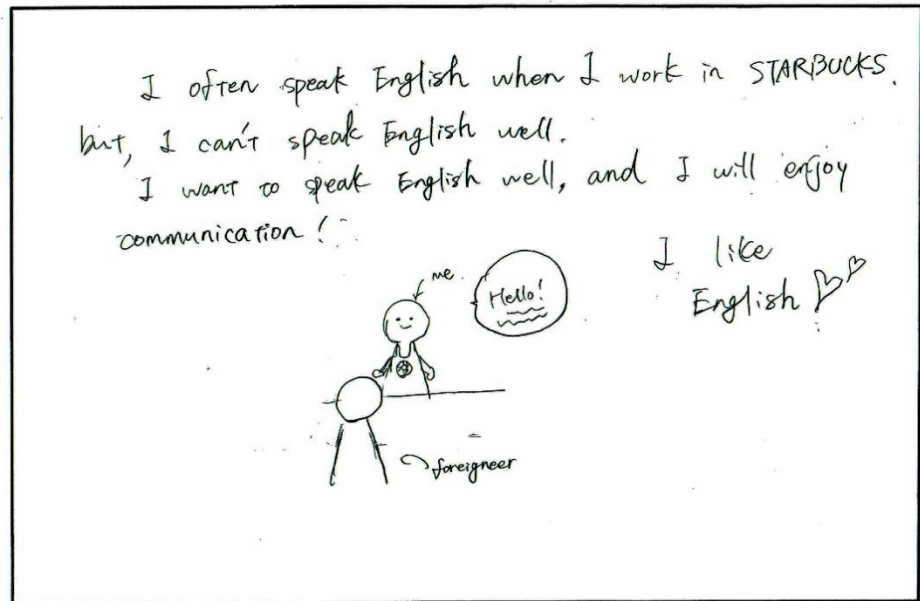 I often speak English when I work in STARBUCKS.
but, I can't speak English well.
I want to speak English well, and I will enjoy
communication!
I like
English
me.
Hello!
foreigneer